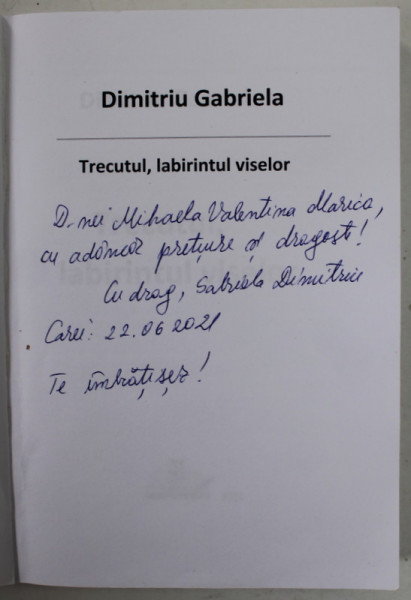 Dimitriu Gabriela
Trecutul, labirintul viselor
D-nei Mihaela Valentina Marica,
cu adâncă prețuire și dragoste!
Cu drag, Gabriela Dimitriu
Carei: 22.06 2021
Te îmbrățișez!